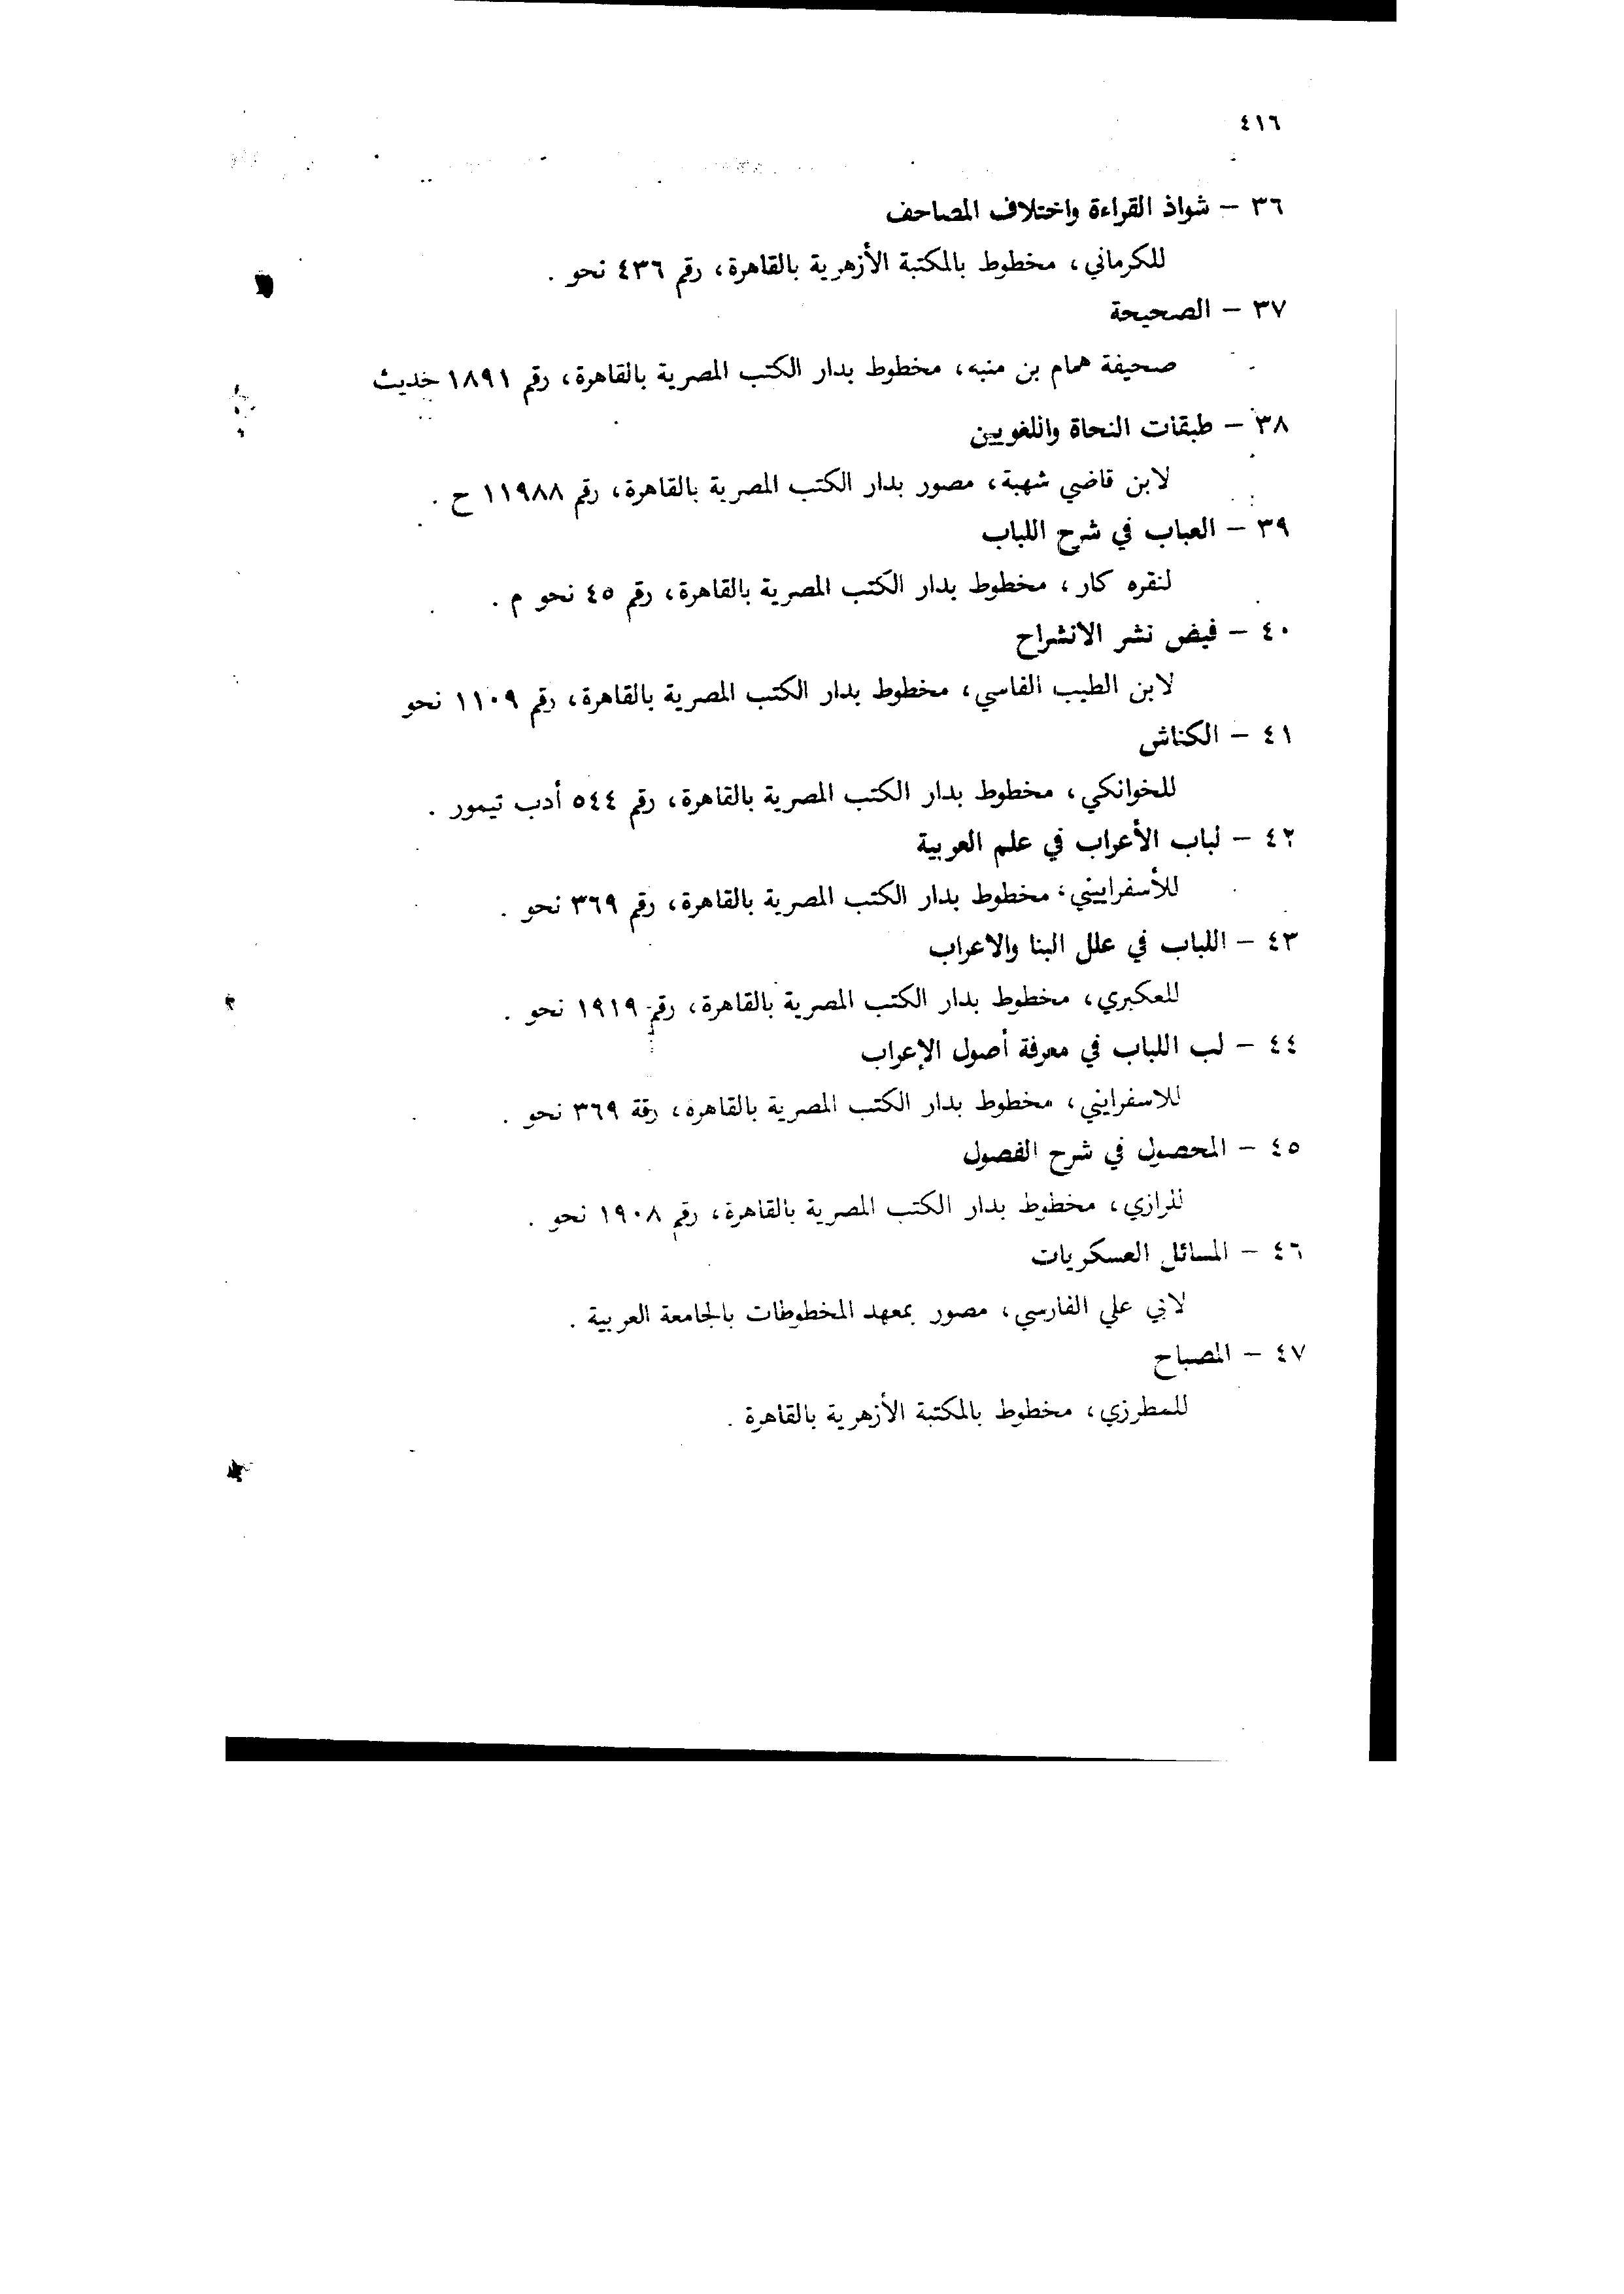 ٤١٦
٣٦ – شواذ القراءة واختلاف المصاحف
للكرماني، مخطوط بالمكتبة الأزهرية بالقاهرة، رقم ٤٣٦ نحو .
٣٧ – الصحيحة
صحيفة همام بن منبه، مخطوط بدار الكتب المصرية بالقاهرة، رقم ١٨٩١ حديث
٣٨ – طبقات النحاة واللغويين
لابن قاضي شهبة، مصور بدار الكتب المصرية بالقاهرة، رقم ١١٩٨٨ ح .
٣٩ – العباب في شرح اللباب
لنقره كار، مخطوط بدار الكتب المصرية بالقاهرة، رقم ٤٥ نحو م .
٤٠ – فيض نشر الانشراح
لابن الطيب الفاسي، مخطوط بدار الكتب المصرية بالقاهرة، رقم ١١٠٩ نحو
٤١ – الكناش
للخوانكي، مخطوط بدار الكتب المصرية بالقاهرة، رقم ٥٤٤ أدب تيمور .
٤٢ – لباب الأعراب في علم العربية
للأسفراييني، مخطوط بدار الكتب المصرية بالقاهرة، رقم ٣٦٩ نحو .
٤٣ – اللباب في علل البنا والاعراب
للعكبري، مخطوط بدار الكتب المصرية بالقاهرة، رقم ١٩١٩ نحو .
٤٤ – لب اللباب في معرفة أصول الإعراب
للاسفرايني، مخطوط بدار الكتب المصرية بالقاهرة، رقة ٣٦٩ نحو .
٤٥ – المحصول في شرح الفصول
للرازي، مخطوط بدار الكتب المصرية بالقاهرة، رقم ١٩٠٨ نحو .
٤٦ – المسائل العسكريات
لابي علي الفارسي، مصور بمعهد المخطوطات بالجامعة العربية .
٤٧ – المصباح
للمطرزي، مخطوط بالمكتبة الأزهرية بالقاهرة .